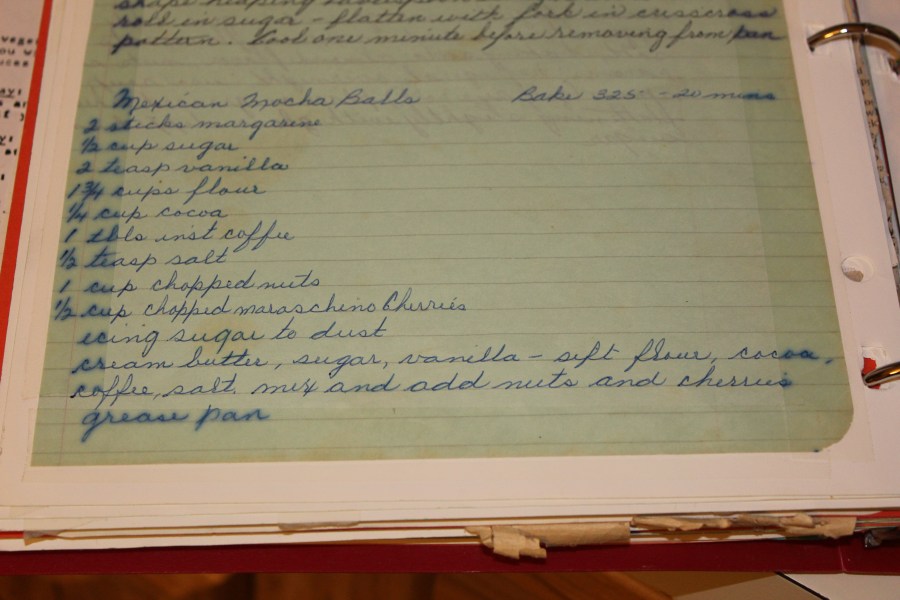 shape heaping
roll in sugar - flatten with fork in crisscross
pattern. Cool one minute before removing from pan
Mexican Mocha Balls Bake 325° - 20 mins
2 sticks margarine
1/2 cup sugar
2 teasp vanilla
1 3/4 cups flour
1/4 cup cocoa
1 tbls inst coffee
1/2 teasp salt
1 cup chopped nuts
1/2 cup chopped maraschino Cherries
icing sugar to dust
cream butter, sugar, vanilla - sift flour, cocoa,
coffee, salt. mix and add nuts and cherries
grease pan